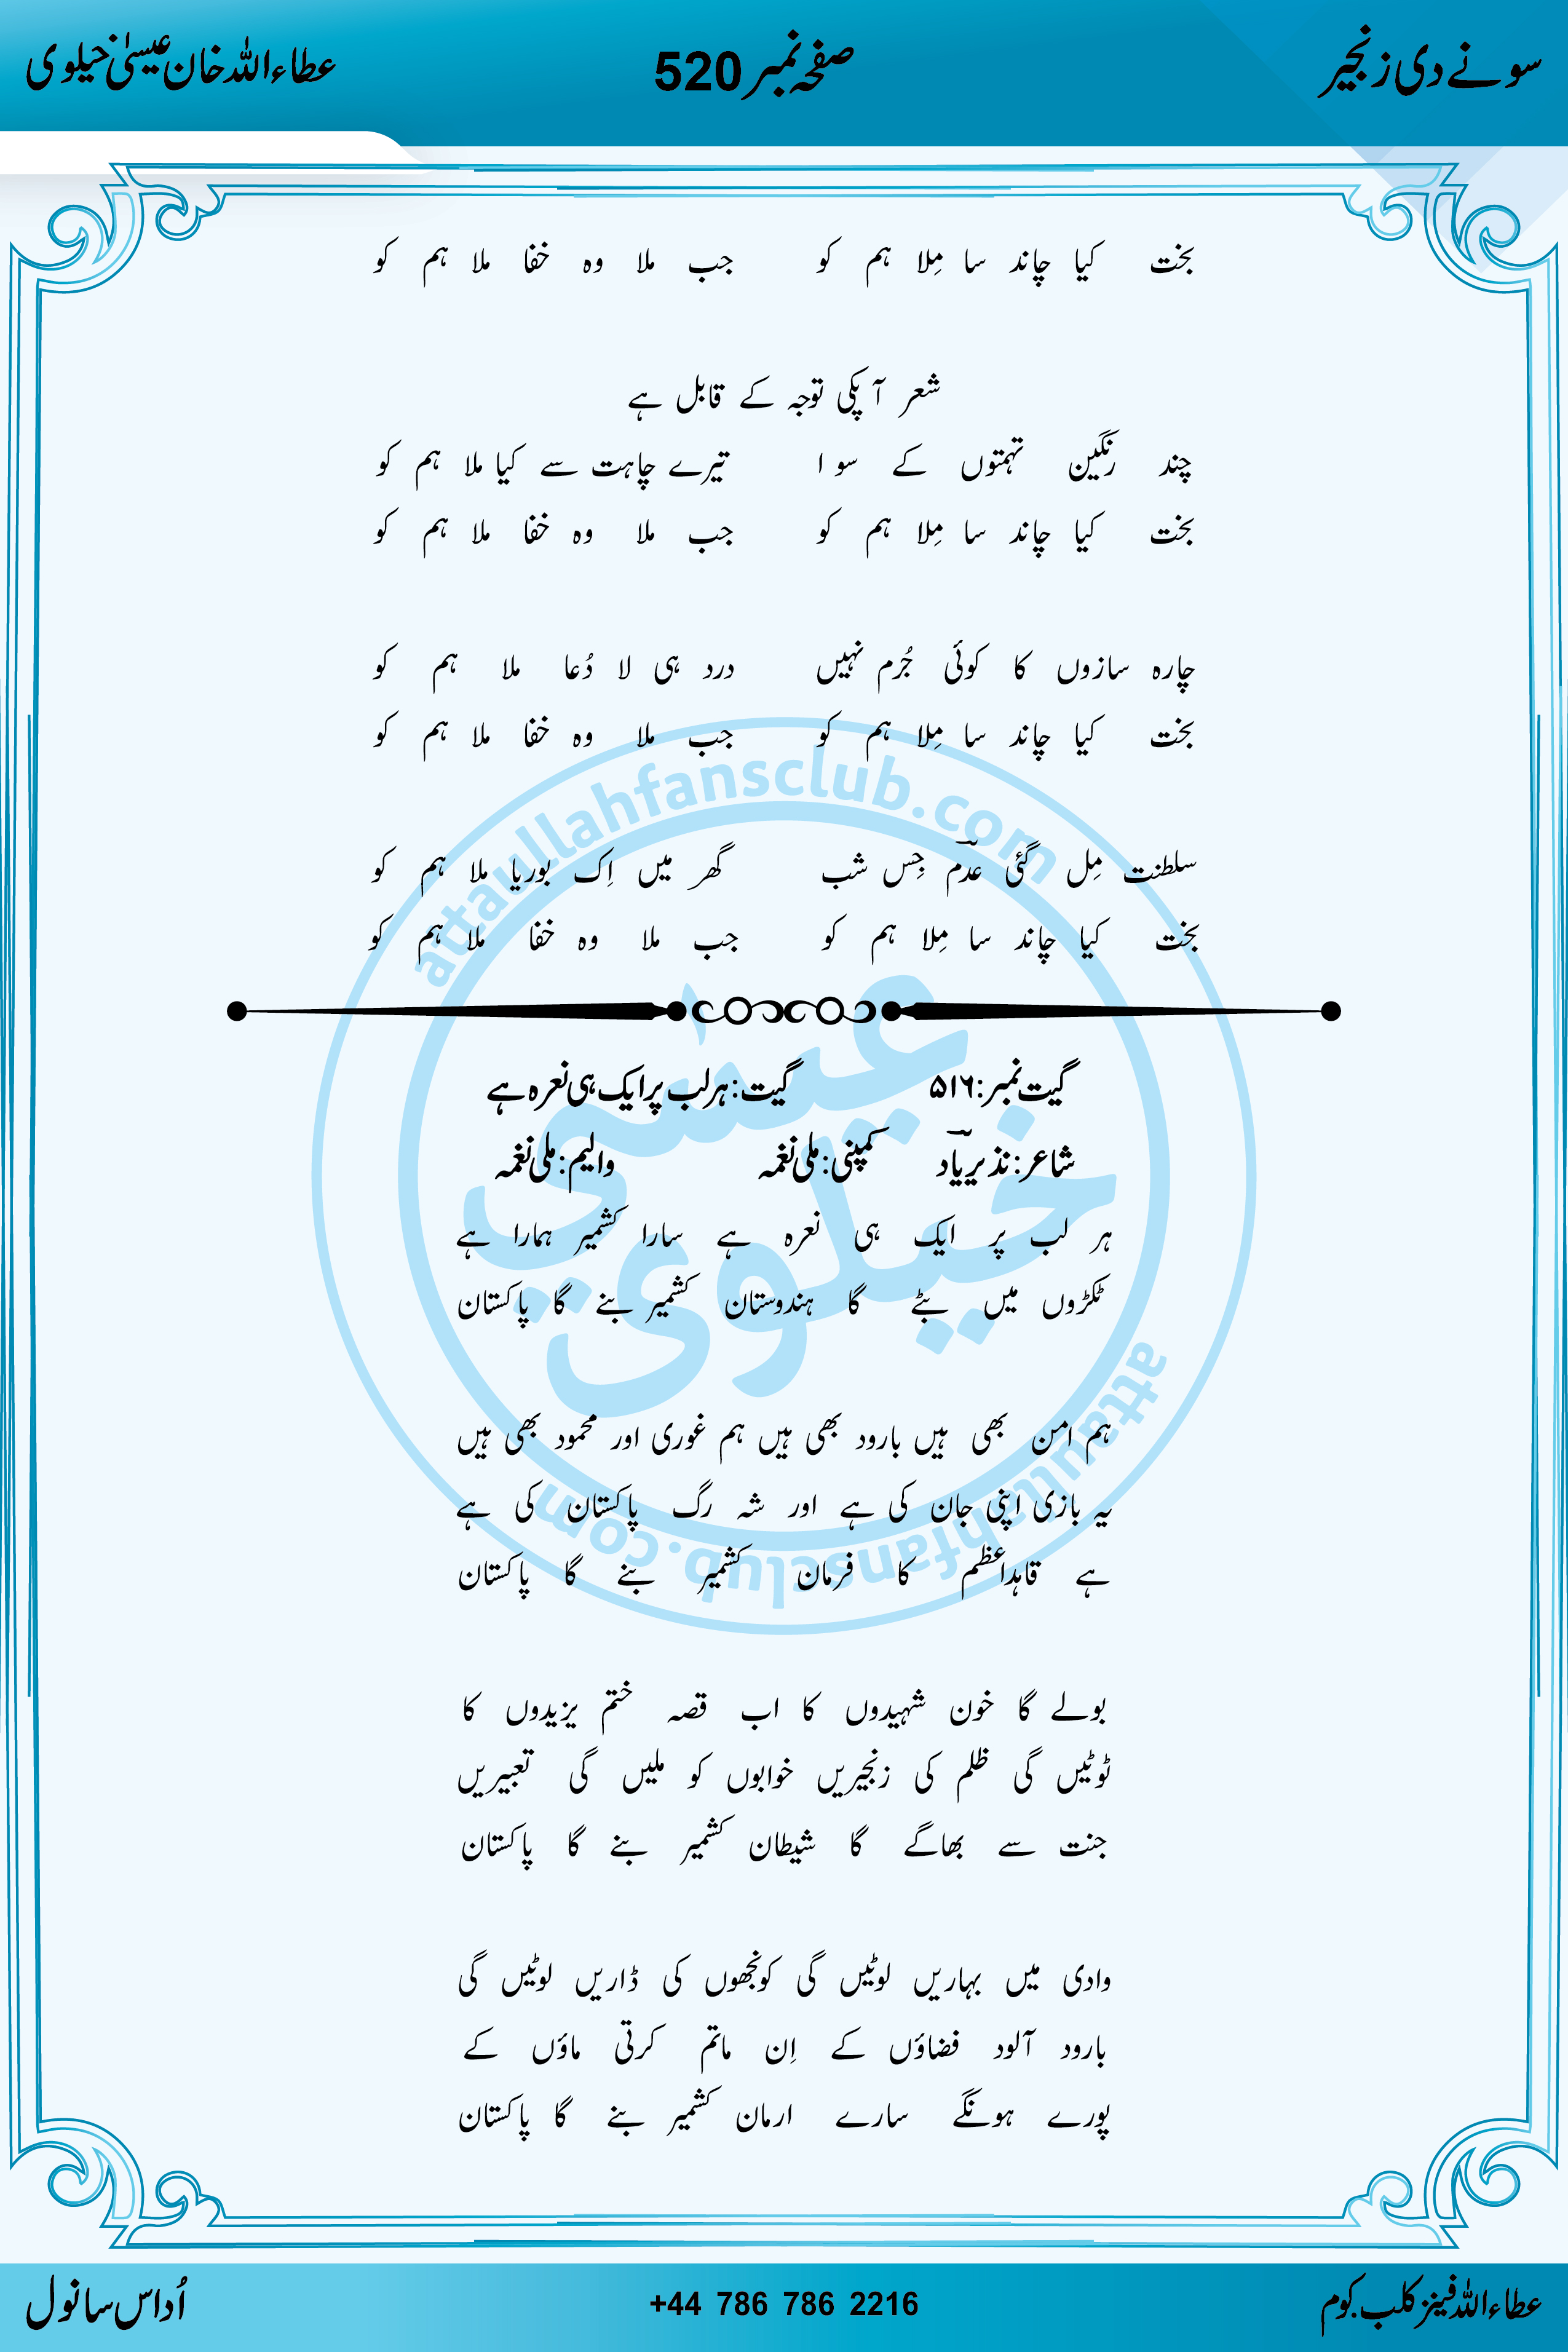 سونے دی زنجیر صفحہ نمبر 520 عطاء اللہ خان عیسیٰ خیلوی
بخت کیا چاند سا مِلا ہم کو جب ملا وہ خفا ملا ہم کو
شعر آپکی توجہ کے قابل ہے
چند رنگین تہمتوں کے سوا تیرے چاہت سے کیا ملا ہم کو
بخت کیا چاند سا مِلا ہم کو جب ملا وہ خفا ملا ہم کو
چارہ سازوں کا کوئی جُرم نہیں درد ہی لا دُعا ملا ہم کو
بخت کیا چاند سا مِلا ہم کو جب ملا وہ خفا ملا ہم کو
سلطنت مِل گئی عدؔم جِس شب گھر میں اِک بوریا ملا ہم کو
بخت کیا چاند سا مِلا ہم کو جب ملا وہ خفا ملا ہم کو
گیت نمبر: ۵۱۶ گیت: ہر لب پر ایک ہی نعرہ ہے
شاعر: نذیر یاؔد کمپنی: ملی نغمہ والیم: ملی نغمہ
ہر لب پر ایک ہی نعرہ ہے سارا کشمیر ہمارا ہے
ٹکڑوں میں بٹے گا ہندوستان کشمیر بنے گا پاکستان
ہم امن بھی ہیں بارود بھی ہیں ہم غوری اور محمود بھی ہیں
یہ بازی اپنی جان کی ہے اور شہ رگ پاکستان کی ہے
ہے قاہداعظم کا فرمان کشمیر بنے گا پاکستان
بولے گا خون شہیدوں کا اب قصہ ختم یزیدوں کا
ٹوٹیں گی ظلم کی زنجیریں خوابوں کو ملیں گی تعبیریں
جنت سے بھاگے گا شیطان کشمیر بنے گا پاکستان
وادی میں بہاریں لوٹیں گی کونجھوں کی ڈاریں لوٹیں گی
بارود آلود فضاؤں کے اِن ماتم کرتی ماؤں کے
پورے ہونگے سارے ارمان کشمیر بنے گا پاکستان
attaullahfansclub.com
عیسٰی
خیلوی
attaullahfansclub.com
عطاء اللہ فینز کلب.کوم +44 786 786 2216 اُداس سانول